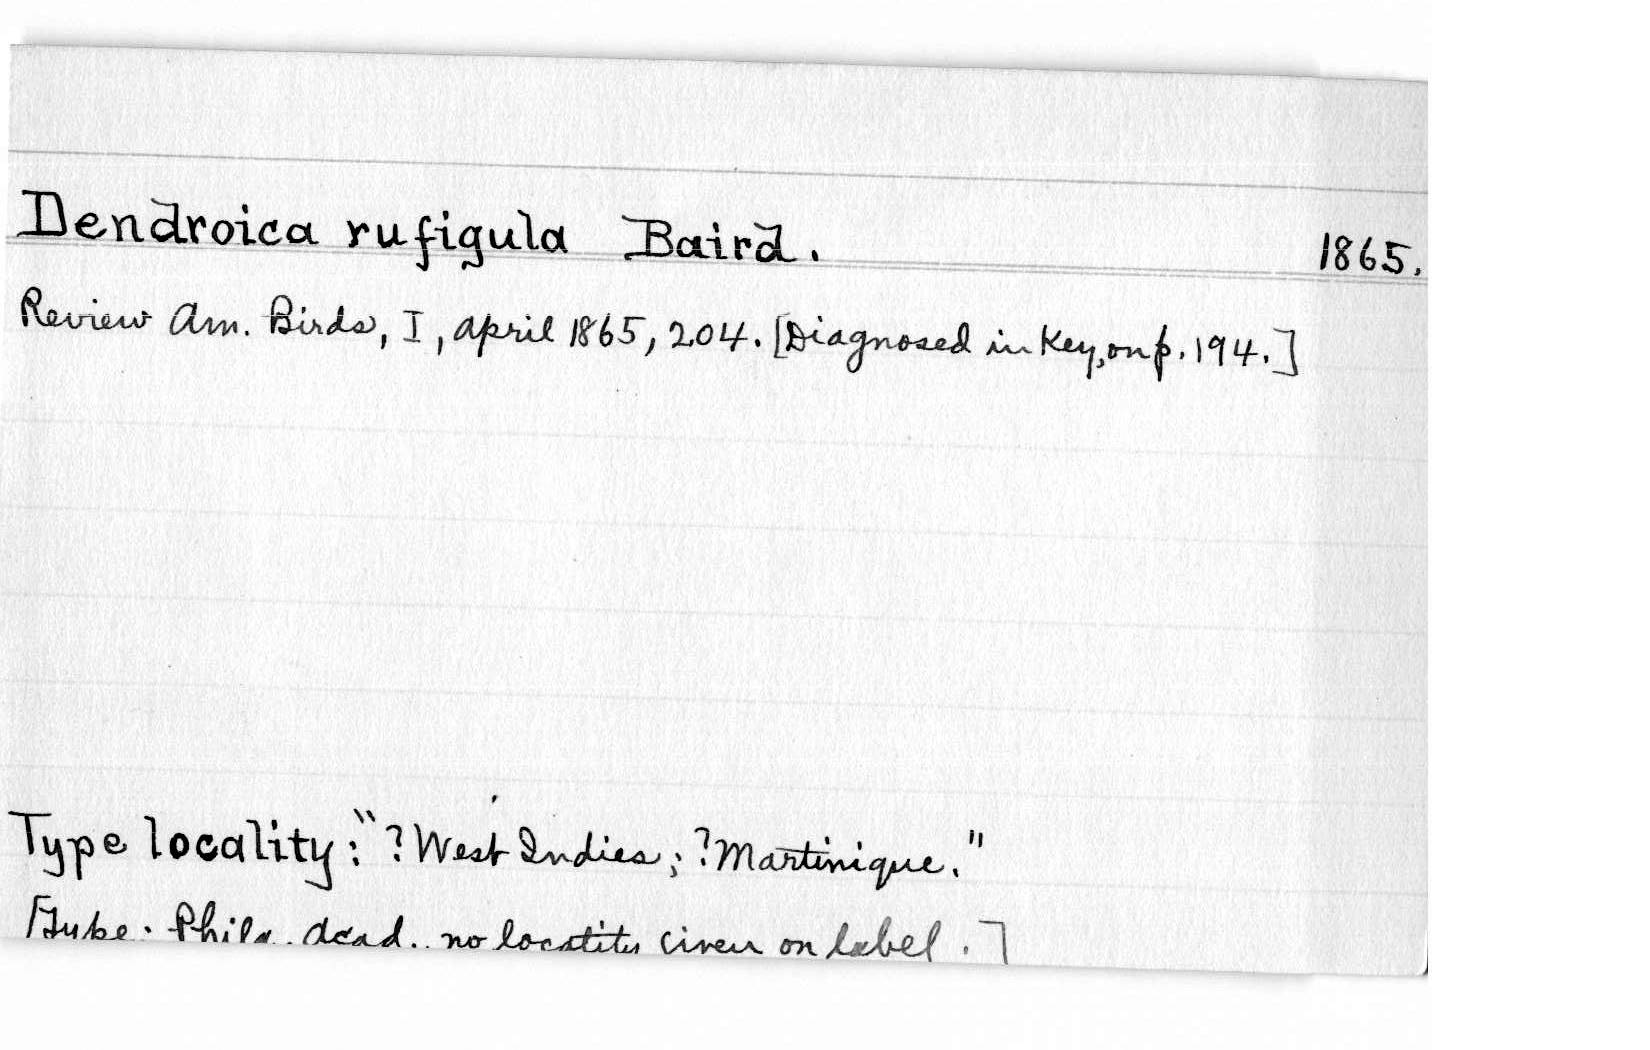 Dendroica rufigula Baird. 1865.
Review Am. Birds, I, April 1865, 204. [Diagnosed in Key, on p. 194.]
Type locality: "?West Indies; ?Martinique."
[Type: Phila. Acad., no locality given on label.]